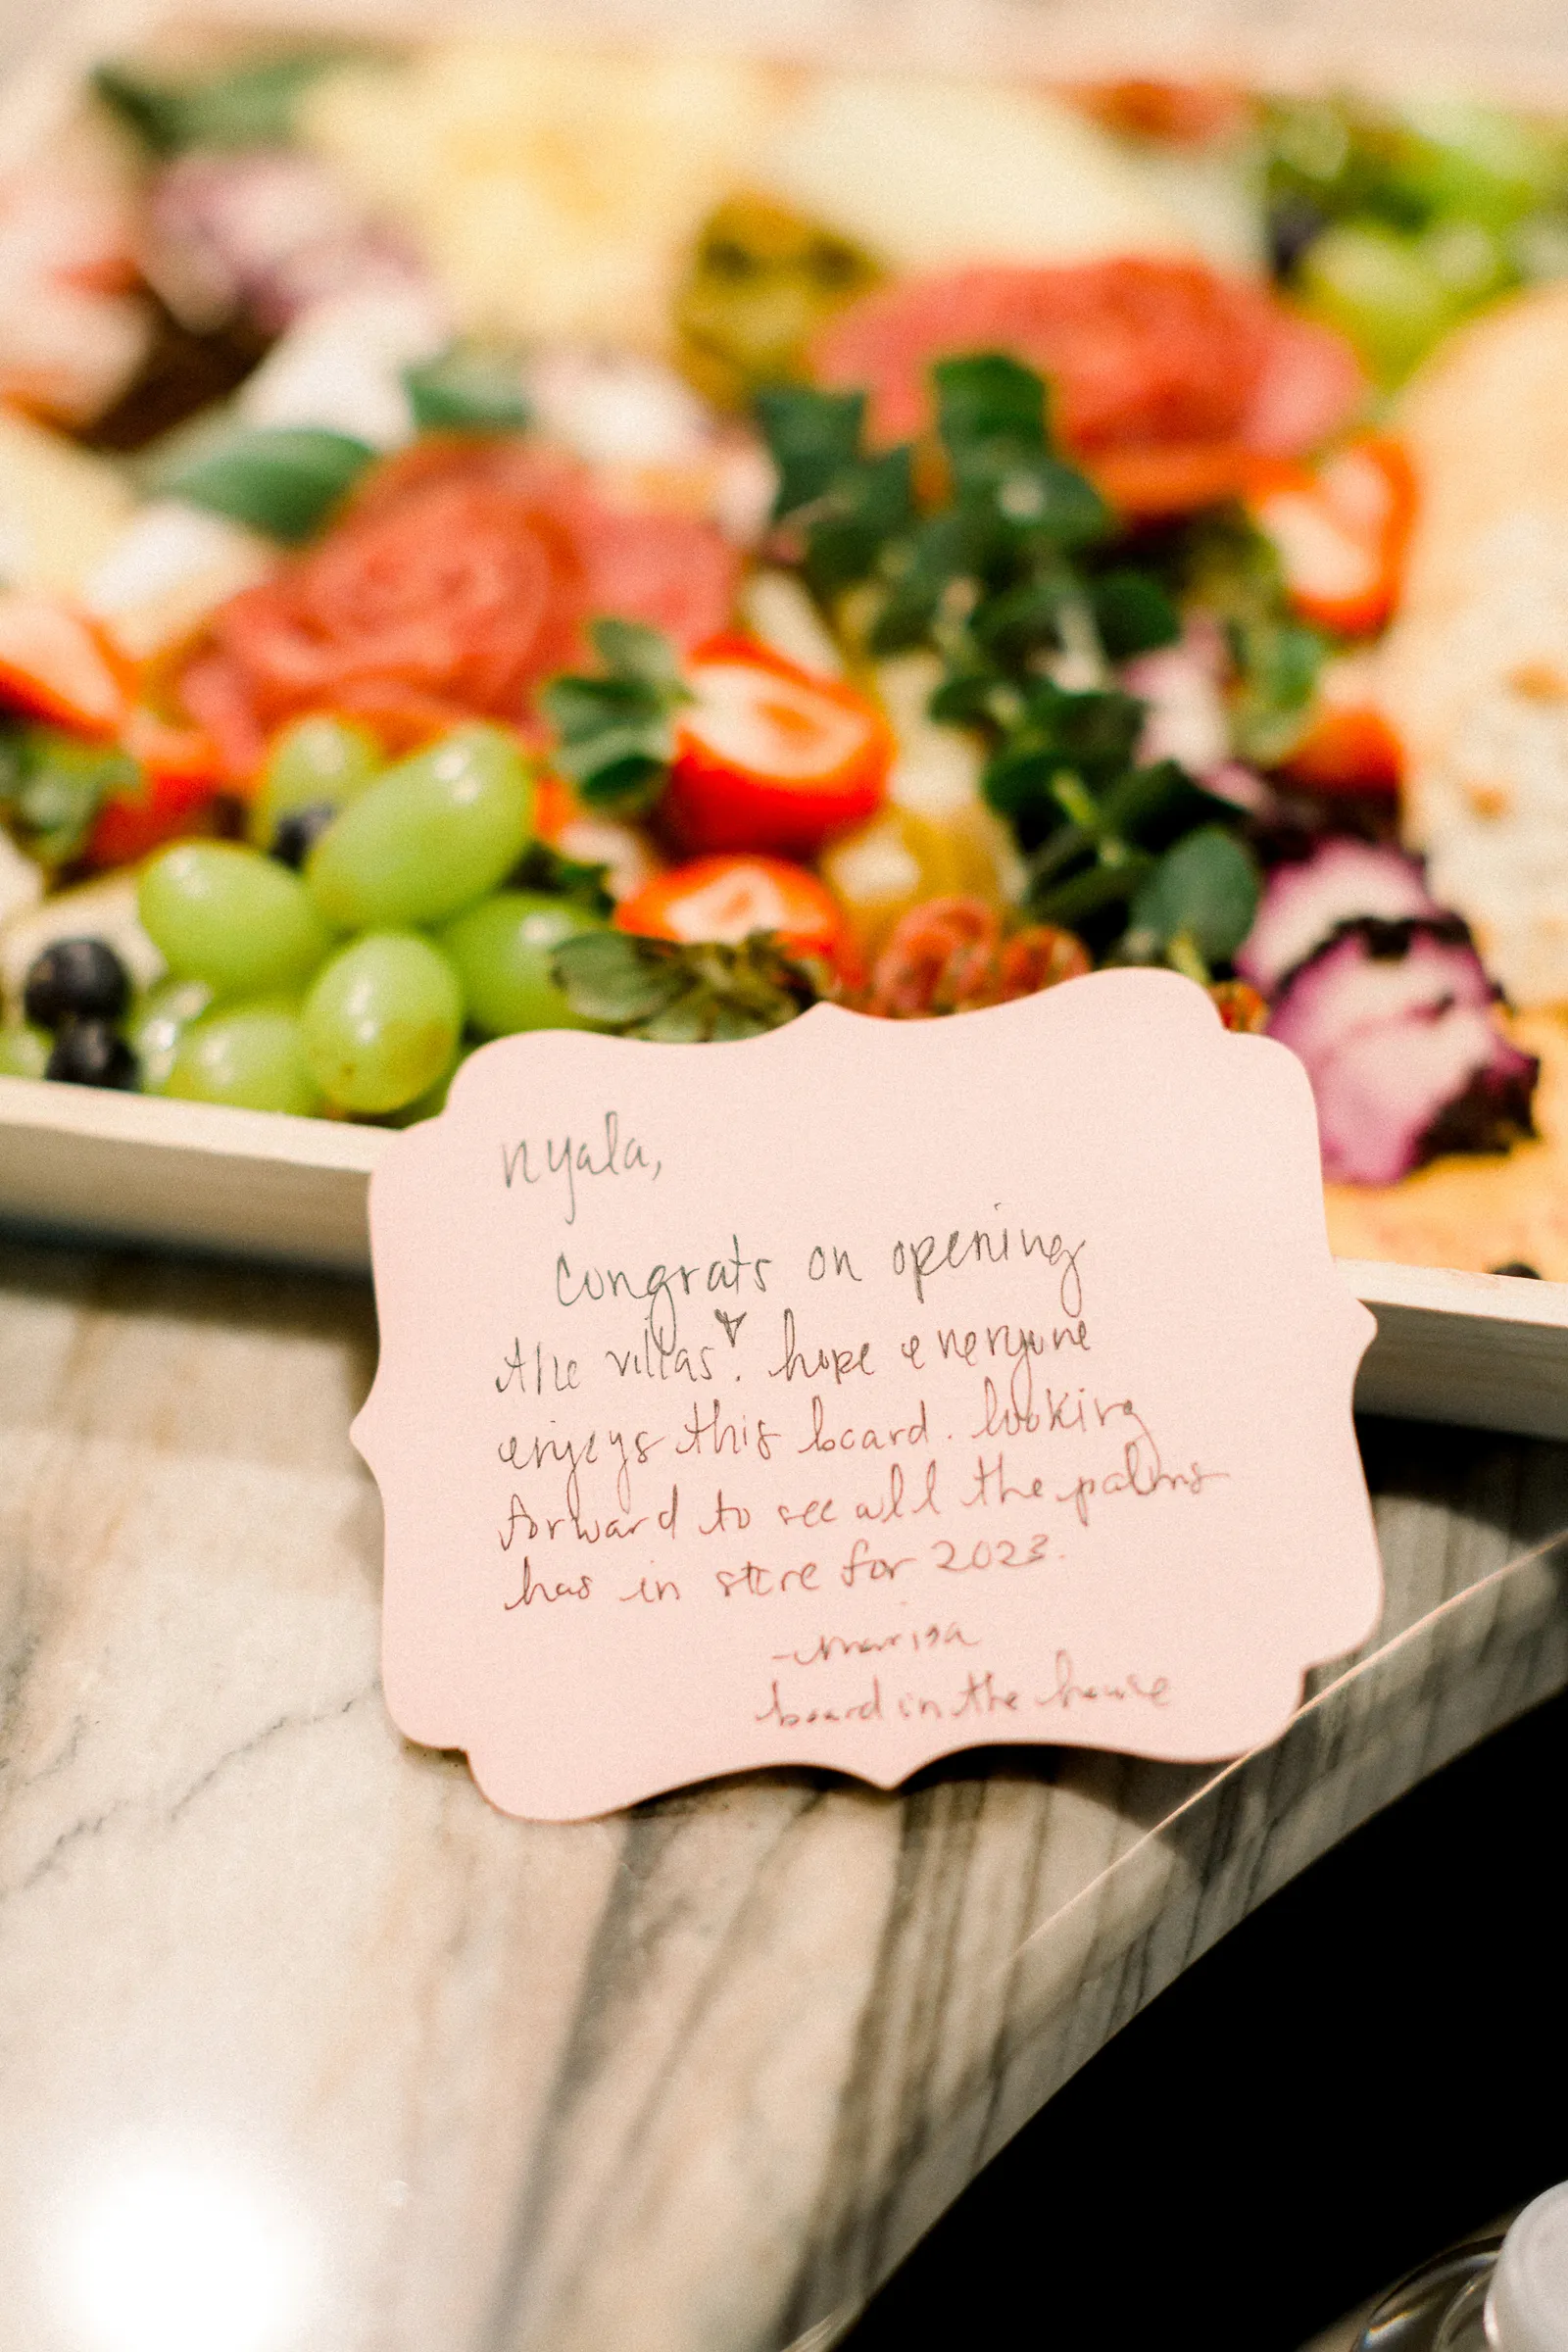 nyala,
congrats on opening
the villas! hope everyone
enjoys this board. looking
forward to see all the palms
has in store for 2023.
-marisa
board in the house